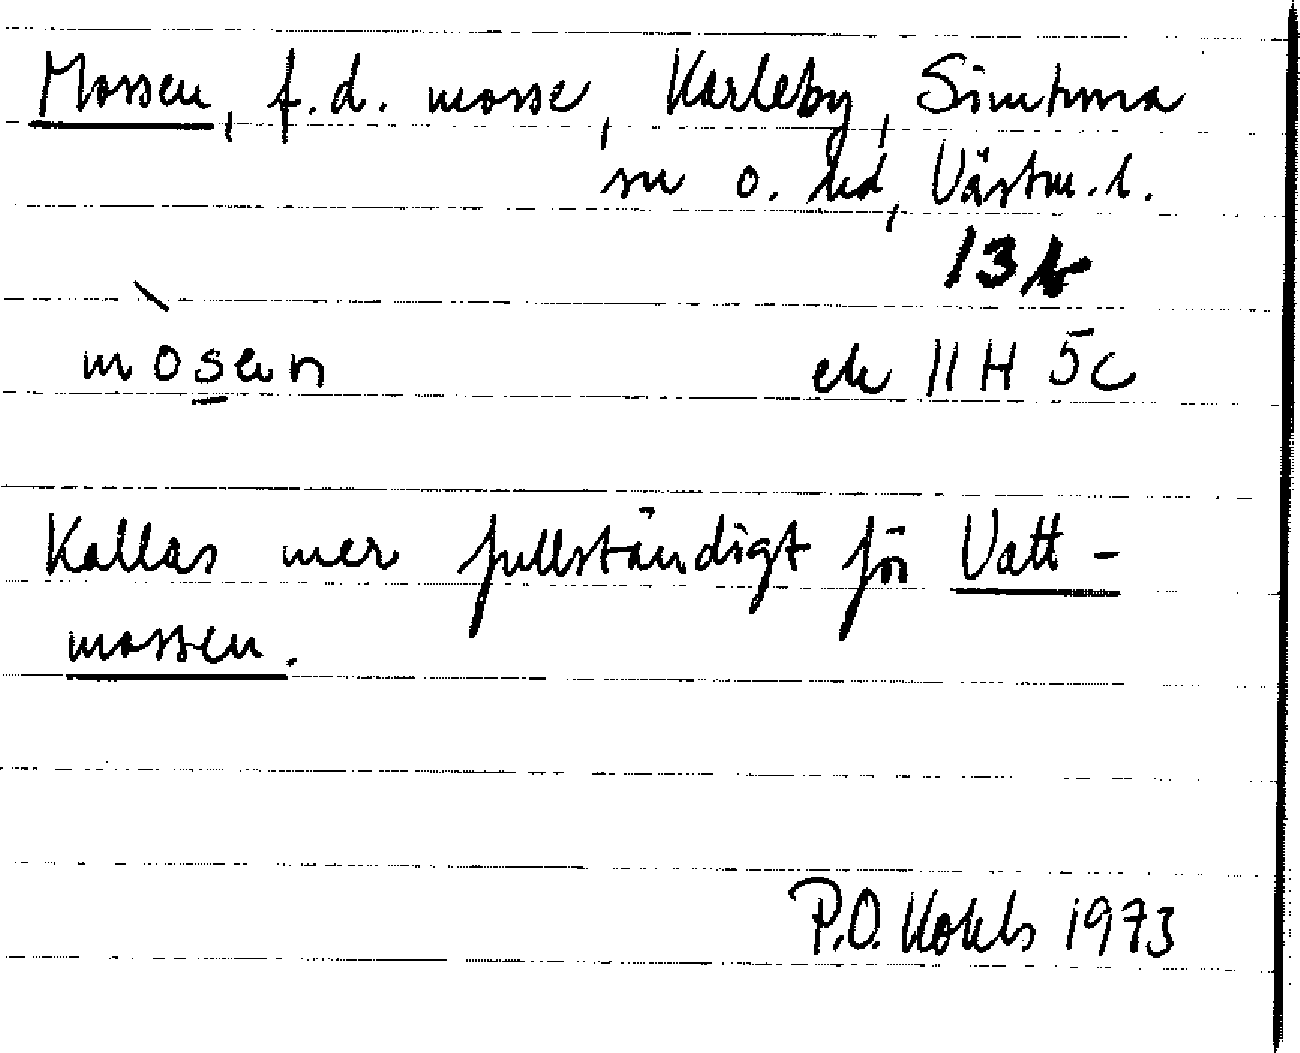 Mossen, f.d. mosse, Karleby, Simtuna
sn o. hd, Västm. l.
13b
mòsen
ek 11 H 5c
Kallas mer fullständigt för Vatt-
mossen.
P.O. 1973